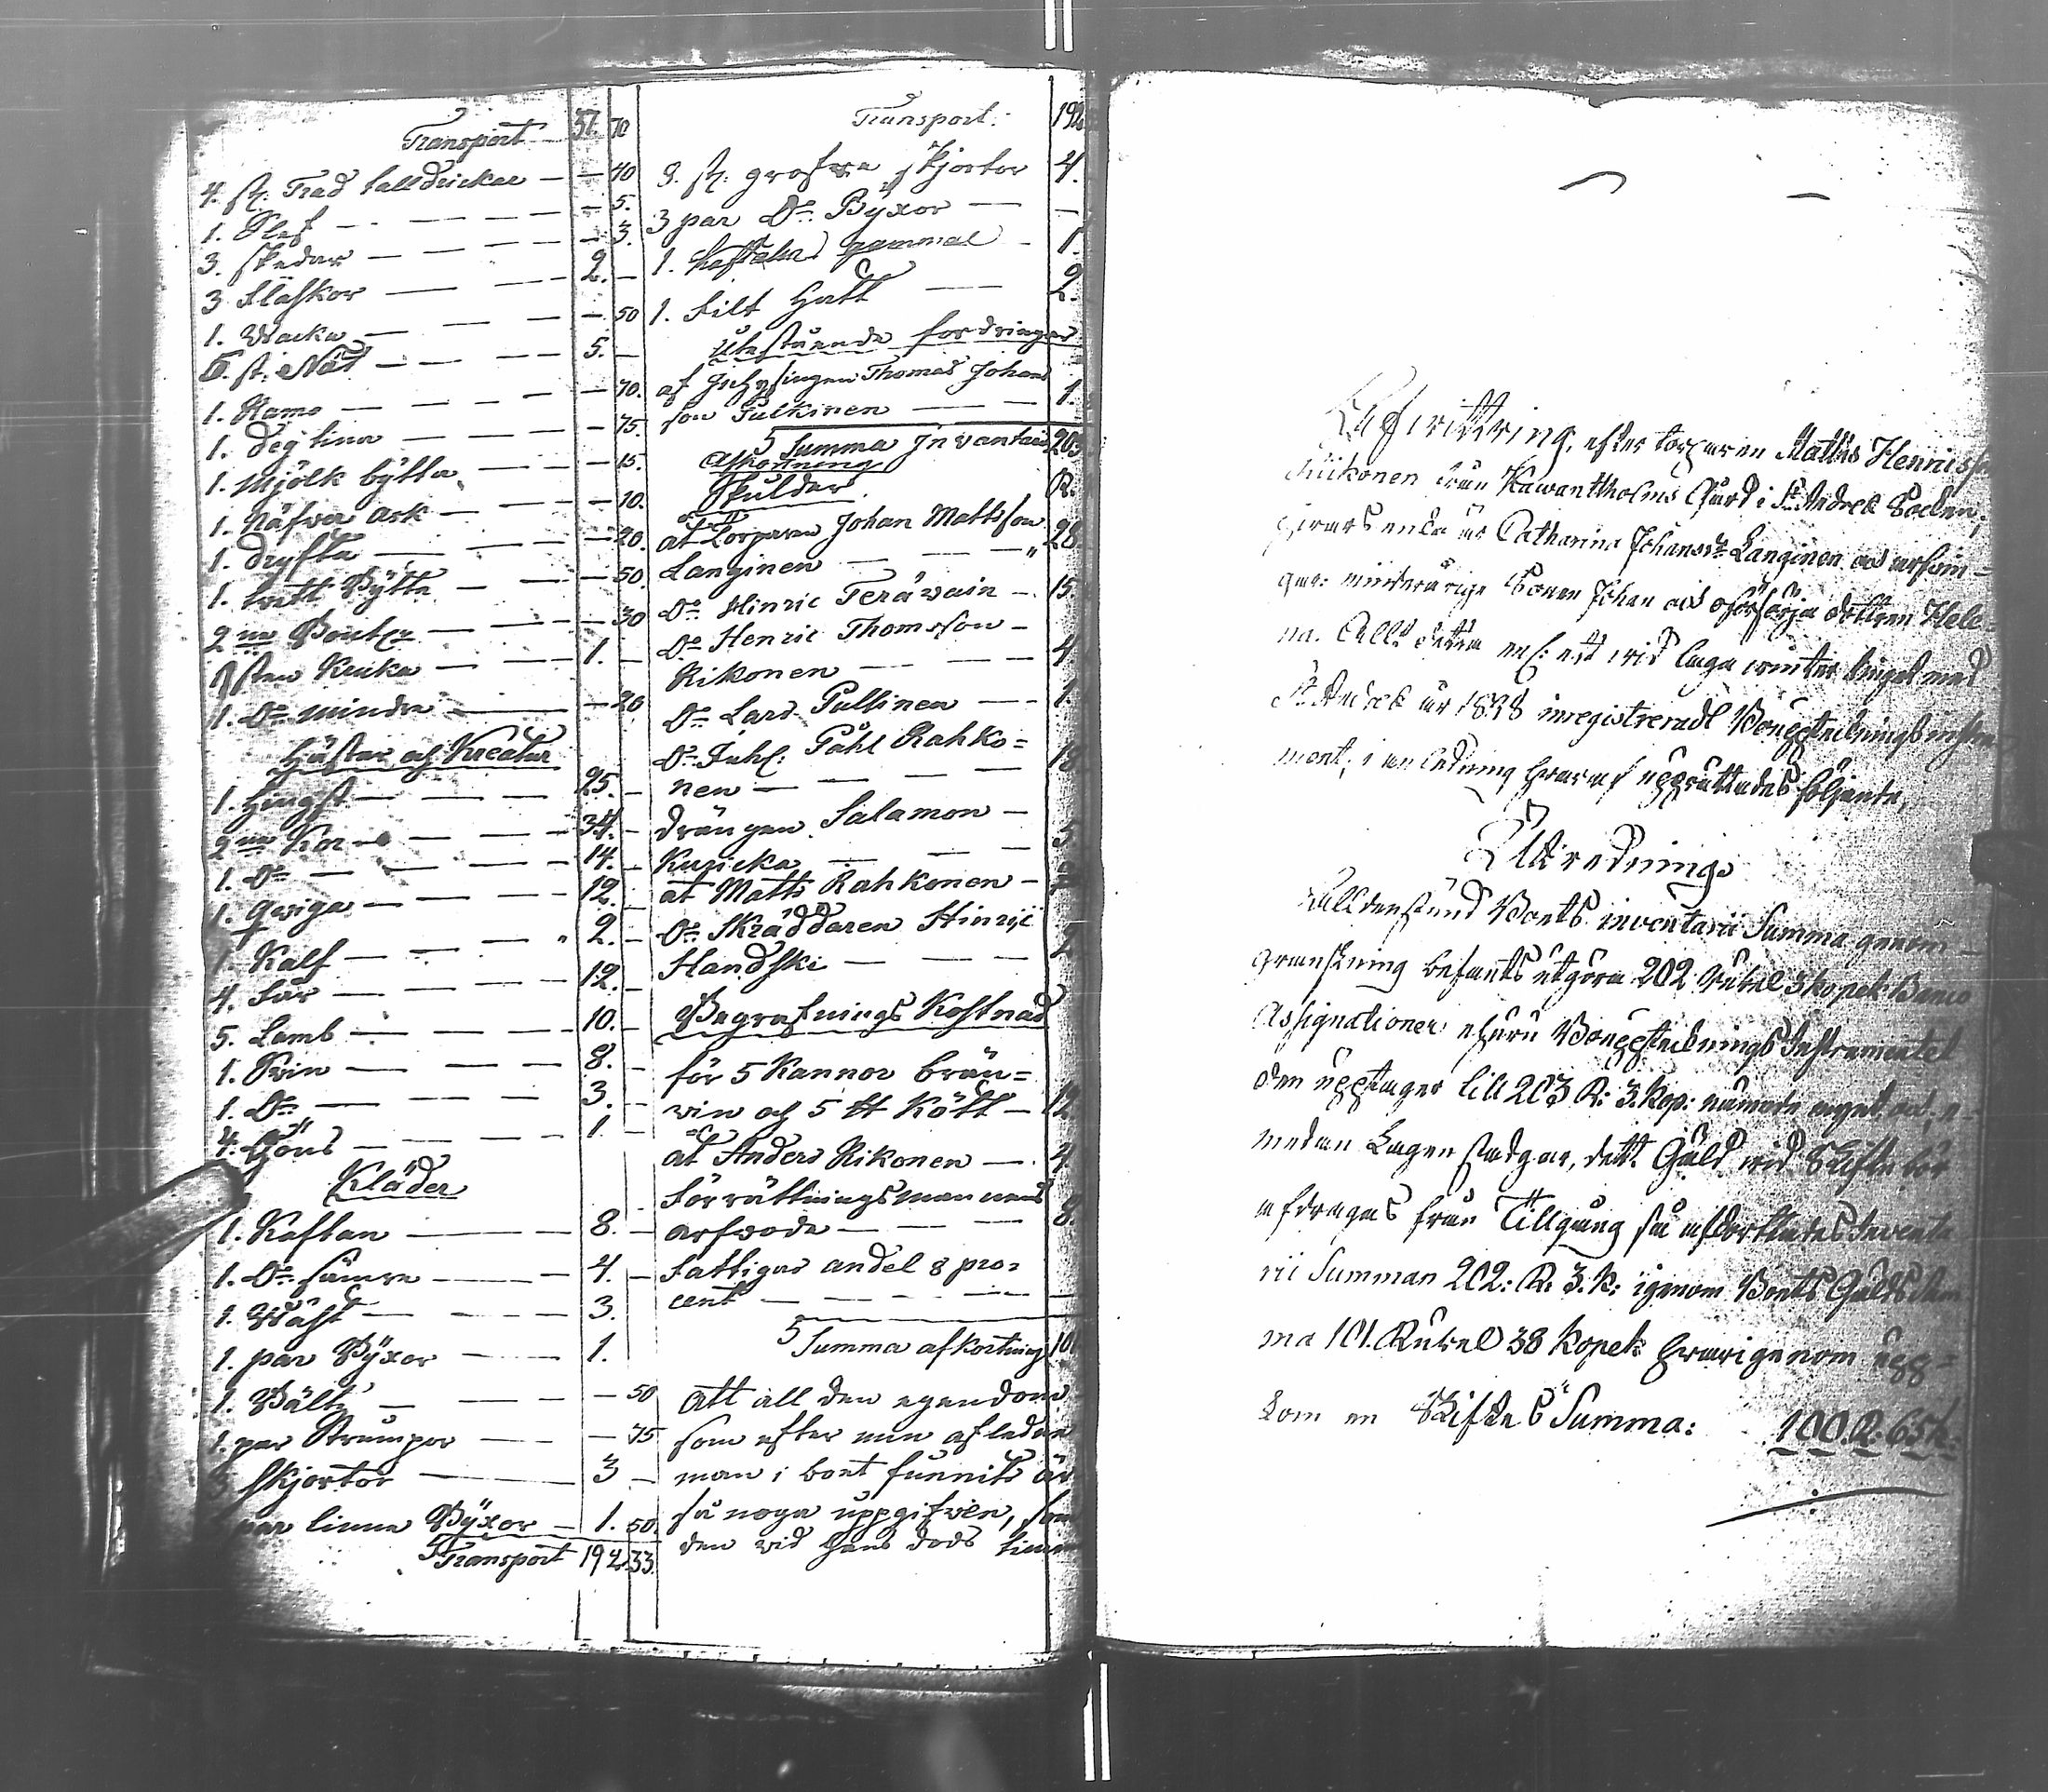 Transport 57. 70
4. st: Träd talldrickar — — 40
1. Slef — — 5.
3. skedar — — 3.
3 Flaskor — 2. —
1. Wacka — — 50
6. st: Nät — 5. —
1. Kams — — 70.
1. deg tina — — 75.
1. Mjölk bytta — — 15.
1. Näfver ask — — 10.
1. dryfta — — 20.
1. tvätt Bytta — — 50.
2ne Bouteljer — — 30
1 sten Kruka — 1. —
1. Do mindre — — 20
Hästar och Kreatur
1. Hingst — 25. —
2ne Kor — 34. —
1. Do — 14. —
1. qwiga — 12. —
1. Kalf — 2. —
4. Får — 12. —
5. Lamb — 10. —
1. Swin — 8. —
1. Do — 3. —
4. Höns — 1. —
Kläder
1. Kaftan — 8. —
1. Do sämre — 4. —
1. Wäst — 3.
1. par Byxor — 1.
1. Bälte — — 50
1. par Strumpor — — 75
3 skjortor — 3 —
par linne Byxor — 1. 50.
Transport 192. 33.
Transport: 192
8. st: grofva skjortor 4.
3 par Do Byxor — —
1. kaftahn gammal — 1.
1. Filt Hatt — 2.
Utestående fordringar
af Inhysingen Thomas Johans
son Pulkinen — 1.
Summa Inventarii 203
Afkortning
Skulder. R.
at Torparen Johan Mattsson
Langinen — 28
Do Hinric Teräwäin — 15
Do Henric Thomsson —
Rikonen — 4
Do Lars Pullinen — 1.
Do Inh: Påhl Rahko=
nen —
drängen Salamon —
Kuricka — 5
at Matts Rahkonen —
Do Skräddaren Hinric
Handski — 2
Begrafnings Kostnad
för 5 Kannor brän=
win och 5 ℔ Kött — 12
at Anders Rikonen — 4
Förrättningsmannens
arfvode — 8.
Fattigas andel 8 pro=
cent —
Summa afkortning 101
Att all den egendom
som efter min aflidne
man i boet funnits är
så noga uppgifven, som
den wid hans döds timma
efter torparen Matts Henriss:
Riikonen från Kawantholms Gård i St Andreæ Socken,
enka är Catharina Johansdr Langinen och arfwin-
gar: minderårige Sonen Johan och oförsörja dottren Hele-
na. Allt detta wid laga winter tinget med
St Andreæ år 1838 inregistreradt Bouppteknings instru-
ment; i anledning hwaraf upprättades följande,
Utredning.
Boets inventarii Summa genom
granskning befants utgöra 202 Rubel 3 kopek: Banco
Assignationer ehuru Bouppteknings Instrumentet
den upptager till 203 R: 3. Kop:
medan Lagen stadgar, att Gäld wid Skifte bör
afdragas från Tillgång så afkortades Inventa
rii Summan 202: R: 3. K: igenom Boets Gälds Sum
ma 101. Rubel 38 Kopek hwarigenom upp=
kom en Skiftes Summa: 100. R: 65 k: